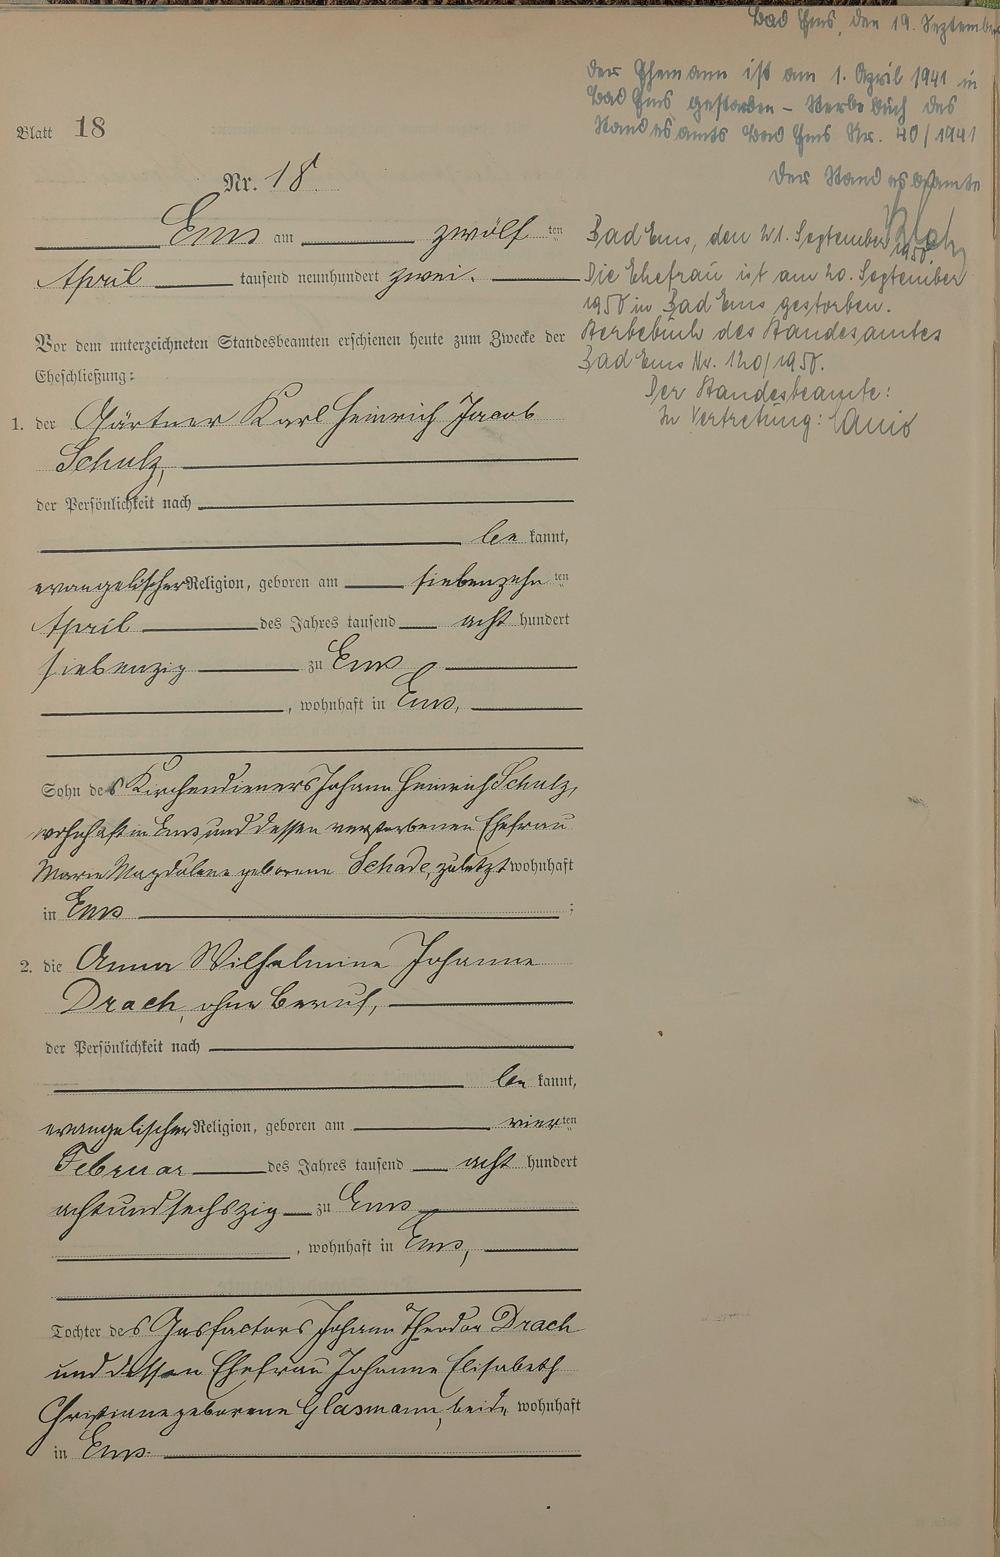 Blatt 18
Nr. 18.
Ems am zwölf ten
April tausend neunhundert zwei.
Vor dem unterzeichneten Standesbeamten erschienen heute zum Zwecke der
Eheschließung:
1. der Gärtner Karl Heinrich Jacob
Schulz,
der Persönlichkeit nach
be kannt,
evangelischer Religion, geboren am siebenzehn ten
April des Jahres tausend acht hundert
siebenzig zu Ems
, wohnhaft in Ems,
Sohn des Kirchendieners Johann Heinrich Schulz,
wohnhaft in Ems und dessen verstorbenen Ehefrau
Marie Magdalene geborene Schade, zuletzt wohnhaft
in Ems ;
2. die Anna Wilhelmine Johanne
Drach, ohne Beruf,
der Persönlichkeit nach
be kannt,
evangelischer Religion, geboren am vier ten
Februar des Jahres tausend acht hundert
achtundsechszig zu Ems
, wohnhaft in Ems,
Tochter des Gasfactors Johann Theodor Drach
und dessen Ehefrau Johanne Elisabeth
Christiane geborene Glasmann, beide wohnhaft
in Ems.
Bad Ems, den 19. September
Der Ehemann ist am 1. April 1941 in
Bad Ems gestorben – Sterbebuch des
Standesamts Bad Ems Nr. 40/1941
Der Standesbeamte
Bad Ems, den 21. September 1950.
Die Ehefrau ist am 20. September
1950 in Bad Ems gestorben.
Sterbebuch des Standesamtes
Bad Ems Nr. 120/1950.
Der Standesbeamte:
In Vertretung: